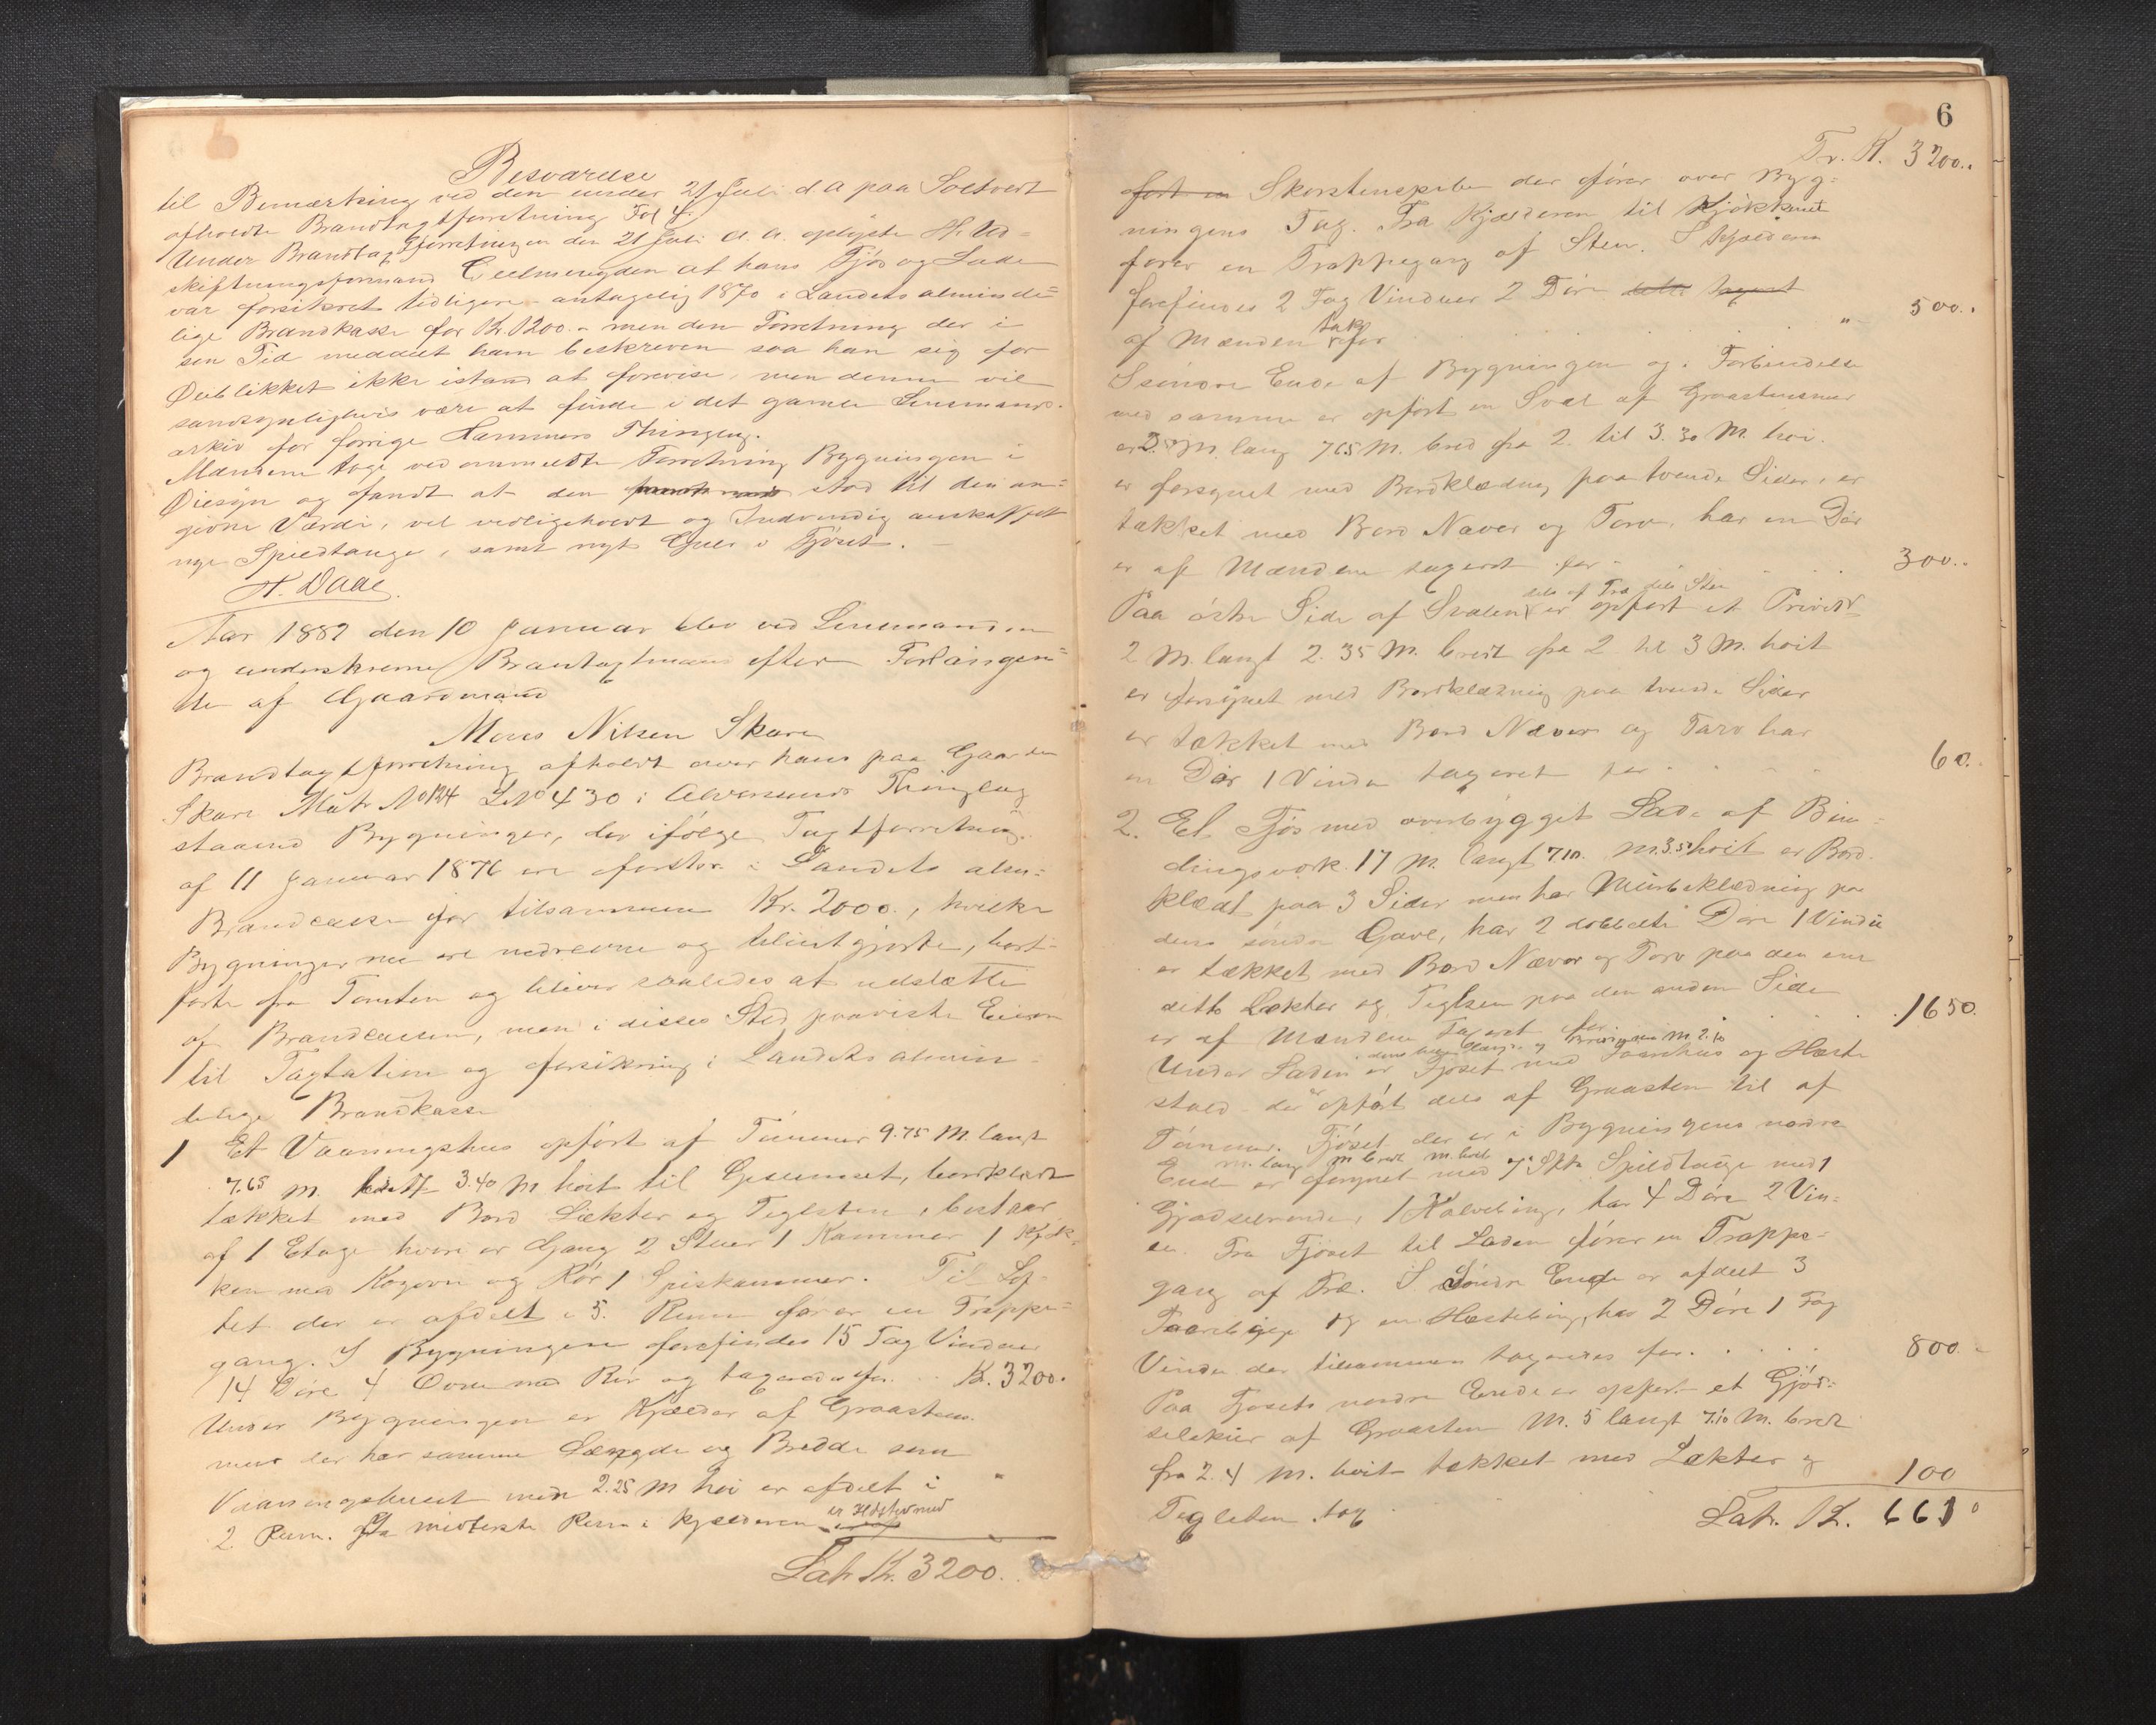 Besvarelse
til Bemærkning ved den under 21 Juli d A paa Soltvert
afholdte Brandtagtforretning Fol 4.
Under Brandtagtforretningen den 21 Juli d. A. oplyste Hr Ud=
skiftningsformand at hans Fjøs og Lade
var forsikret tidligere antagelig 1870 i Landets alminde=
lige Brandkasse for Kr. 1200. - men den Forretning der i
sin Tid meddelt ham beskreven saa han sig for
Øieblikket ikke istand at forevise, men denne vil
sandsynligvis være at finde i det gamle Lensmands-
arkiv for forrige Hammers Thinglag.
Mændene toge ved anmeldte Forretning Bygningen i
Øiesyn og fandt at den stod til den an=
givne Værdi, vel vedligeholdt og Indvendig anskaffet
nye Spildtauge, samt nyt Gulv i Fjøset. -
H. Daae.
Aar 1882 den 10 Januar blev ved Lensmanden
og underskrevne Brantagtmænd efter Forlangen=
de af Gaardmand
Mons Nilsen Skare
Brandtagtforretning afholdt over hans paa Gaarden
Skare Matr No 124 L No 430 i Alversunds Thinglag
staaend Bygninger, der ifølge Tagtforretning
af 11 Januar 1876 ere forsikr. i Landets alm:
Brandcasse for tilsammen Kr. 2000., hvilke
Bygninger nu ere nedrevne og tilintgjorte, bort-
førte fra Tomten og bliver saaledes at udslætte
af Brandcassen, men i disses Sted paaviste Eieren
til Tagtation og forsikring i Landets almin-
delige Brandkasse
1 Et Vaaningshus opført af Tømmer 9.75 M. langt
7.65 M. bredt 3.40 M høit til Gesimset, bordklædt
tækket med Bord Lækter og Teglsten, bestaar
af 1 Etage hvori er Gang 2 Stuer 1 Kammer 1 Kjøk-
ken med Kogovn og Rør 1 Spiskammer. Til Lof-
tet der er afdelt i 5. Rum fører en Trappe=
gang. I Bygningen forefindes 15 Fag Vinduer
14 Døre 4 Ovne med Rør og tageredes for . . Kr. 3200.
Under Bygningen er Kjælder af Graastens
mur der har samme Længde og Bredde som
Vaaningshuset men 2.25 M høi er afdelt i "
2. Rum. Fra midterste Rum i Kjælderen er Ildsted med
Lat. Kr. 3200.
6
Tr. K. 3200..
ført en Skorstenspibe der fører over Byg=
ningens Tag. Fra Kjælderen til Kjøkkenet
fører en Trappegang af Sten. I Kjælderen
forefindes 2 Fag Vinduer 2 Døre
af Mændene takr for . . . . " 500..
I søndre Ende af Bygningen og i Forbindelse
med samme er opført en Sval af Graastensmur
er 2. M. lang 7.65 M. bred fra 2. til 3.30 M. høi.
er forsynet med Bordklædning paa tvende Sider, er
tækket med Bord Næver og Torv, har en Dør
er af Mændene tageret for . . . . 300..
Paa østre Side af Svalen dels af Træ dels Sten er opført et Privet
2 M. langt 2.35 M. bredt fra 2 til 3 M. høit
er forsynet med Bordklædning paa tvende Sider
er tækket med Bord Næver og Torv har
en Dør 1 Vindu tageret for . . . . 60.
2. Et Fjøs med overbygget Lade af Bin=
dingsverk. 17 M. langt 7.10. M. 3.5 høit er Bord-
klædt paa 3 Sider men har Murbeklædning paa
dens søndre Gavl, har 2 dobbelte Døre 1 Vindu
er tækket med Bord Næver og Torv paa den ene
ditto Lækter og Teglsten paa den anden Side
er af Mændene tageret for . . . . 1650.
Under Laden i dens hele Længde og Bredde men M 2.10 er Fjøset med Saarhus og Heste
stald - der er opført dels af Graasten til af
Tømmer. Fjøset der er i Bygningens nordre
m. lang m bredt m. høit
Ende er forsynet med 7 Stk Spildtauge med 1
Gjødselrende, 1 Kalvebing, har 4 Døre 2 Vin-
er. Fra Fjøset til Laden fører en Trappe-
gang af Træ. I Søndre Ende er afdelt 3
og en Hestebing, har 2 Døre 1 Fag
Vindu der tilsammen tageredes for . . . . 800.-
Paa Fjøsets nordre Ende er opført et Gjød-
selskur af Graasten M. 5 langt 7.10 M. bredt
fra 2.4 M. høit tækket med Lækter og
Teglsten tag . . 100
Lat. Kr. 6610